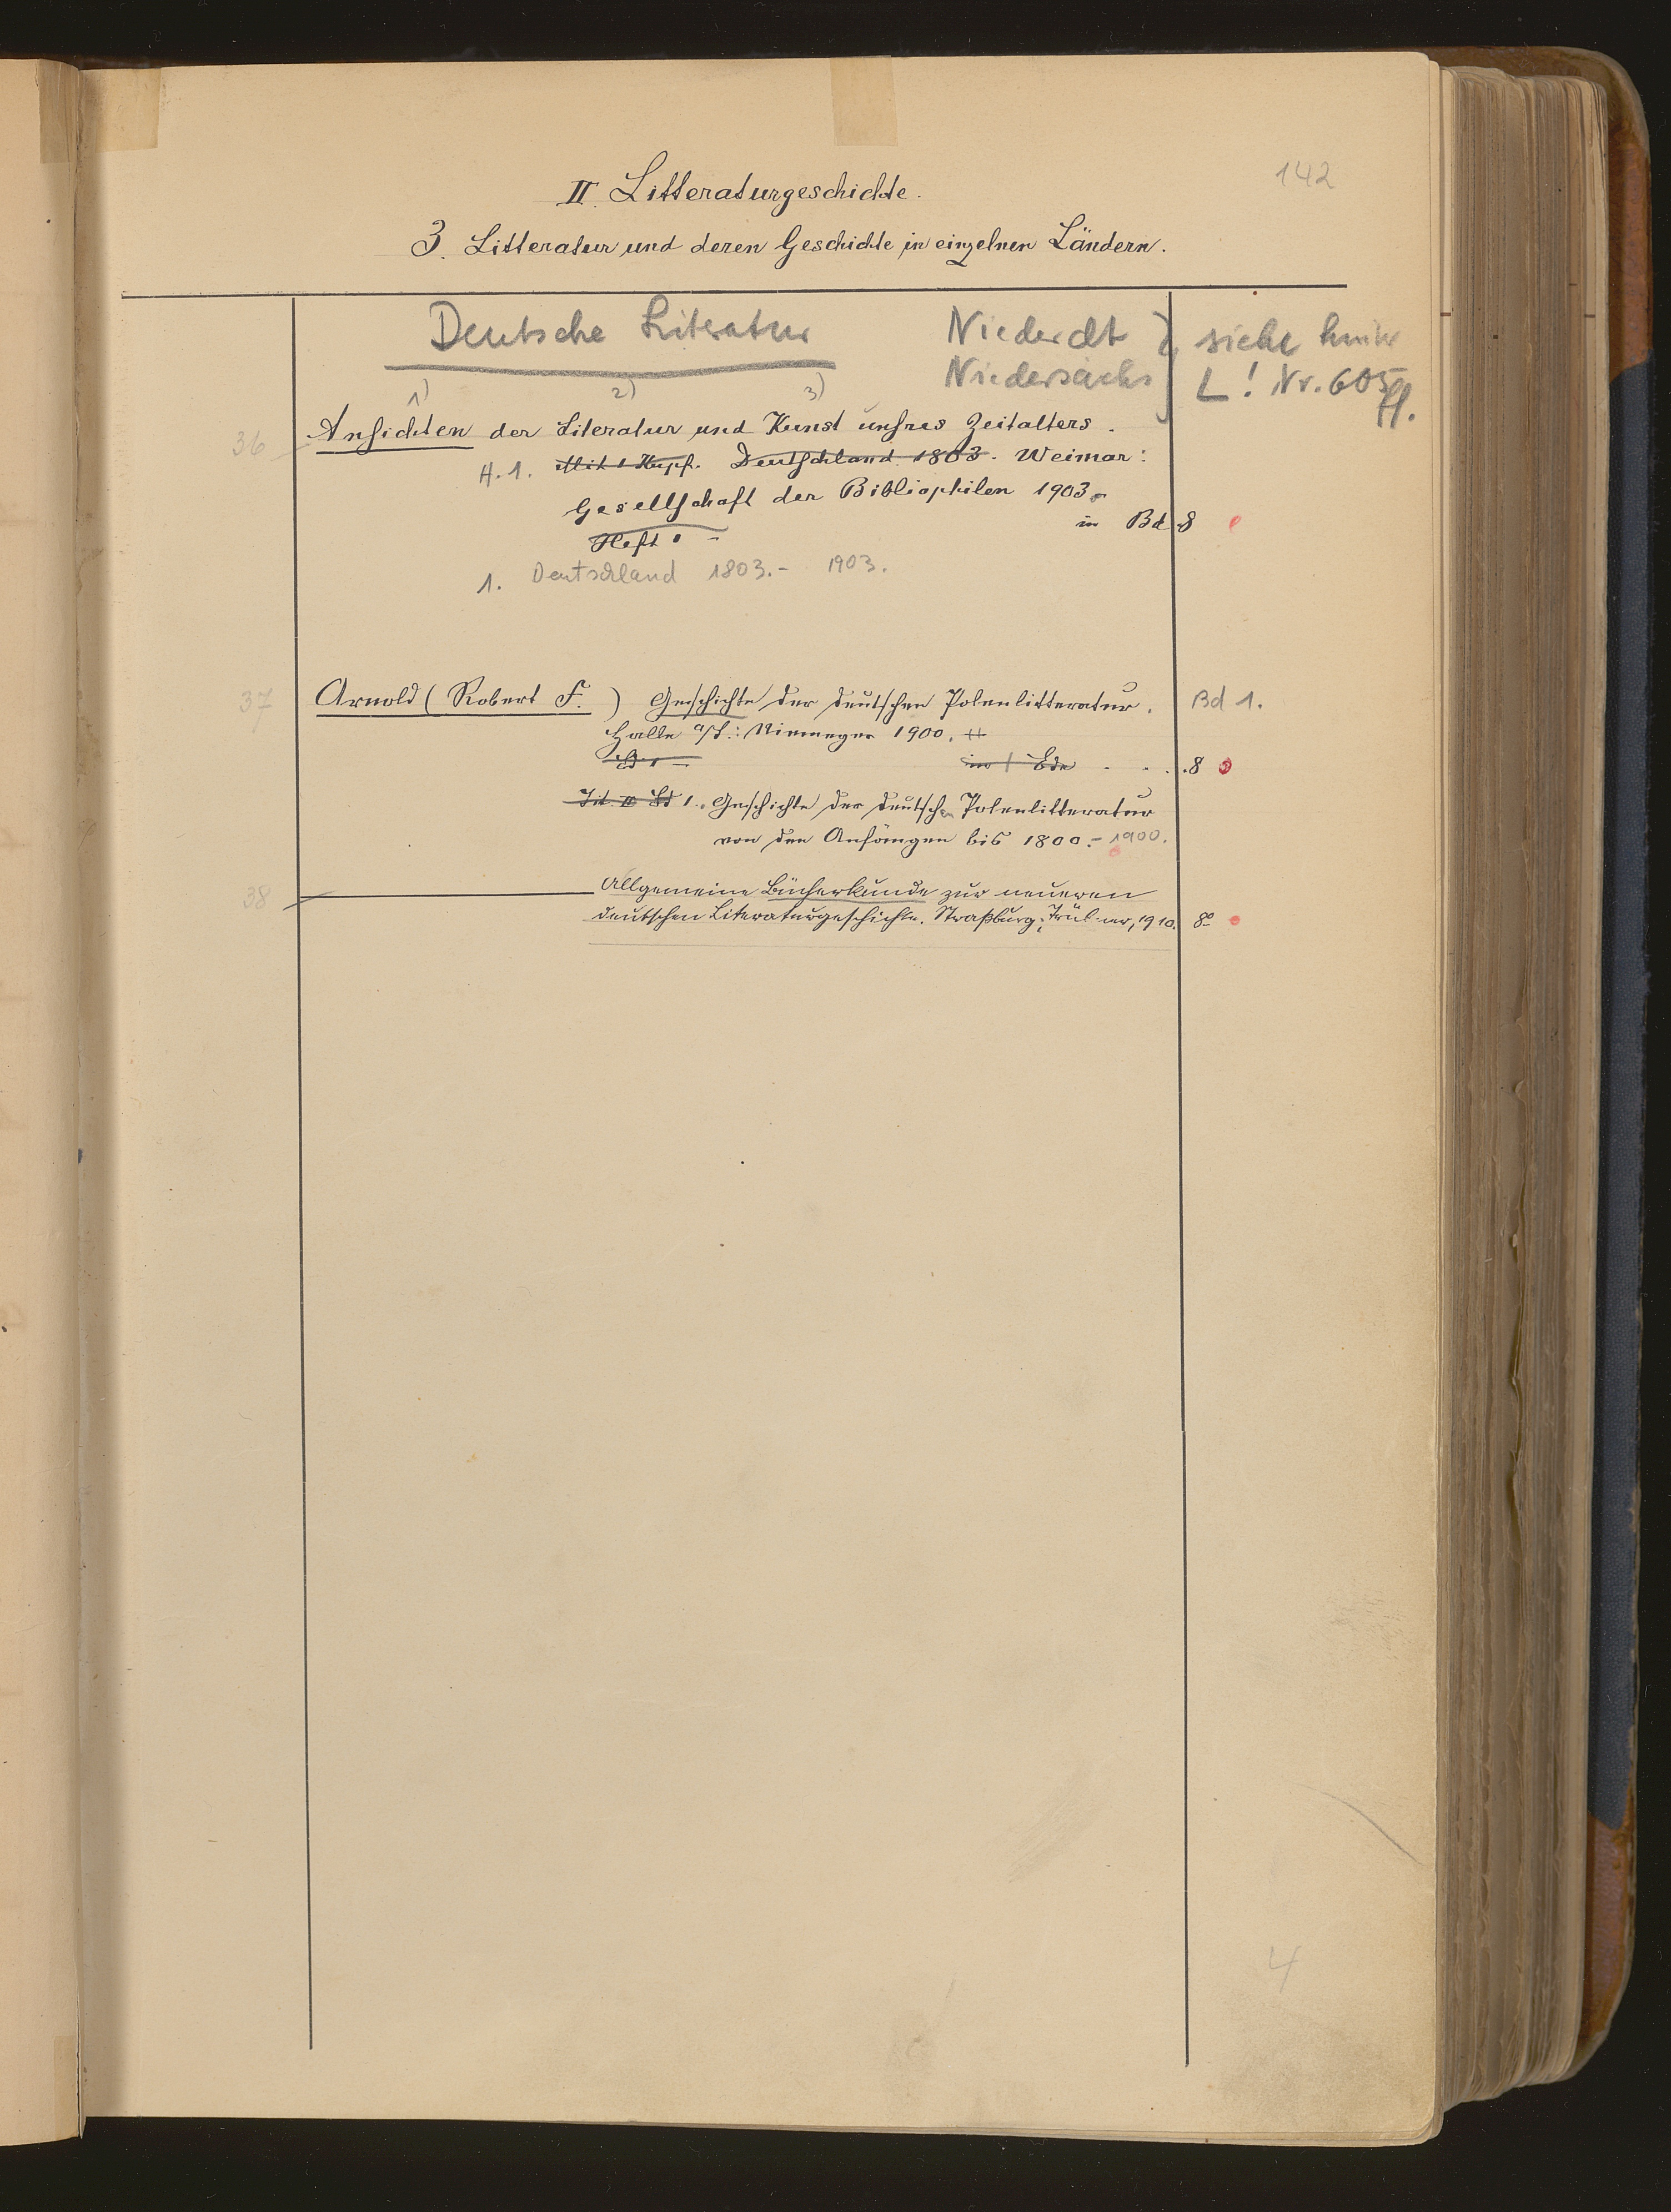 142
II. Litteraturgeschichte.
3. Litteratur und deren Geschichte in einzelnen Ländern.
Deutsche Literatur Niederdt siehe hinter
Niedersächs L! Nr. 605 ff.
1) 2) 3)
36 Ansichten der Literatur und Kunst unsres Zeitalters.
H. 1. Mit 1 Kupf. Deutschland 1803. Weimar:
Gesellschaft der Bibliophilen 1903.
in Bd 8
Heft 1 -
1. Deutschland 1803.- 1903.
37 Arnold (Robert F.) Geschichte der deutschen Polenlitteratur. Bd 1.
Halle a/S.: Niemeyer 1900.
Bd 1 - in 1 Bde . . . 8
Tit. II Bd 1. Geschichte der deutschen Polenlitteratur
von den Anfängen bis 1800.- 1900.
38 Allgemeine Bücherkunde zur neueren
deutschen Literaturgeschichte. Straßburg: Trübner, 1910. 8°
4